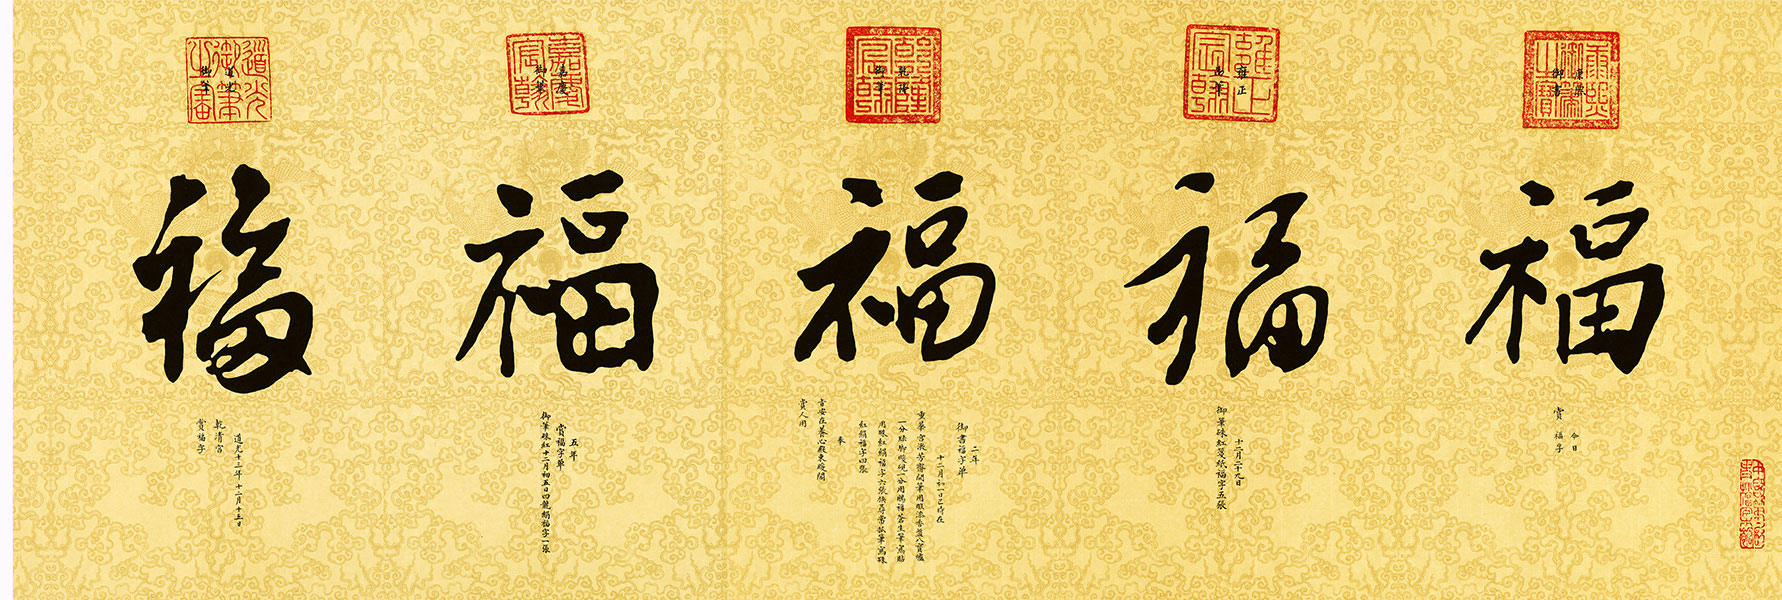 康熙御筆之寶
康熙
御書
福
今日
賞福字
雍正宸翰
雍正
御筆
福
十二月二十九日
御筆硃紅箋紙福字五張
乾隆宸翰
乾隆
御筆
福
二年
御書福字單
十二月初一日巳時在
重華宮漱芳齋開筆用
用硃紅絹福字六張
紅絹福字四張
奉
旨安在養心殿東暖閣
賞人用
嘉慶宸翰
嘉慶
御筆
福
五年
賞福字單
御筆硃紅十二月初五日四龍絹福字一張
道光御筆之寶
道光
御筆
福
道光十三年十二月十五日
乾清宮
賞福字